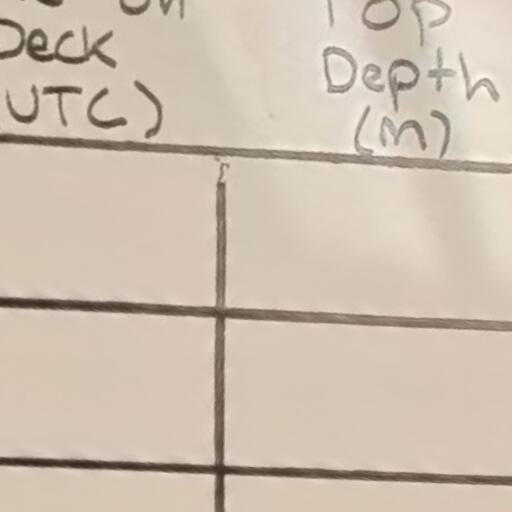 on
Deck
UTC)
Top
Depth
(m)